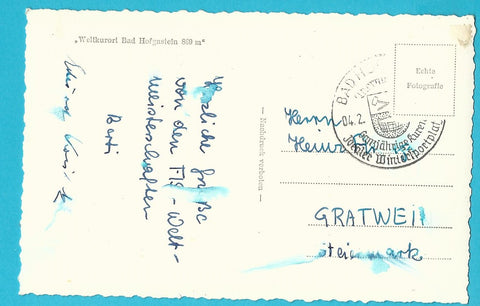 „Weltkurort Bad Hofgastein 869 m"
Herzliche Grüße
von den FIS-Welt-
meisterschaften
Berti
— Nachdruck verboten —
Echte
Fotografie
BAD H
04.2.
Ganzjährige Kuren
Idealer Wintersportplatz
Herrn
Heinz
GRATWEIN
Steiermark